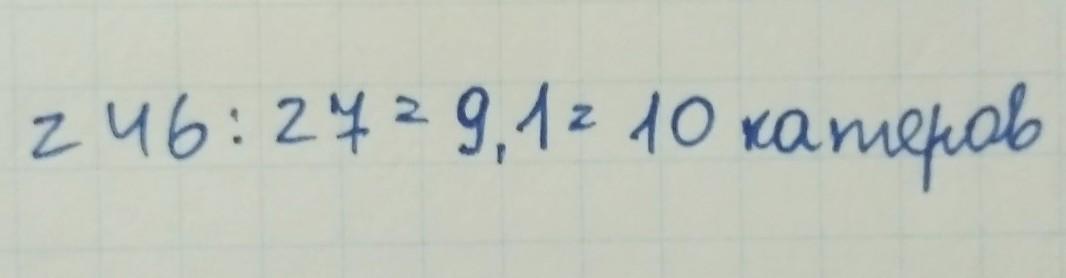 246 : 27 = 9,1 = 10 катеров